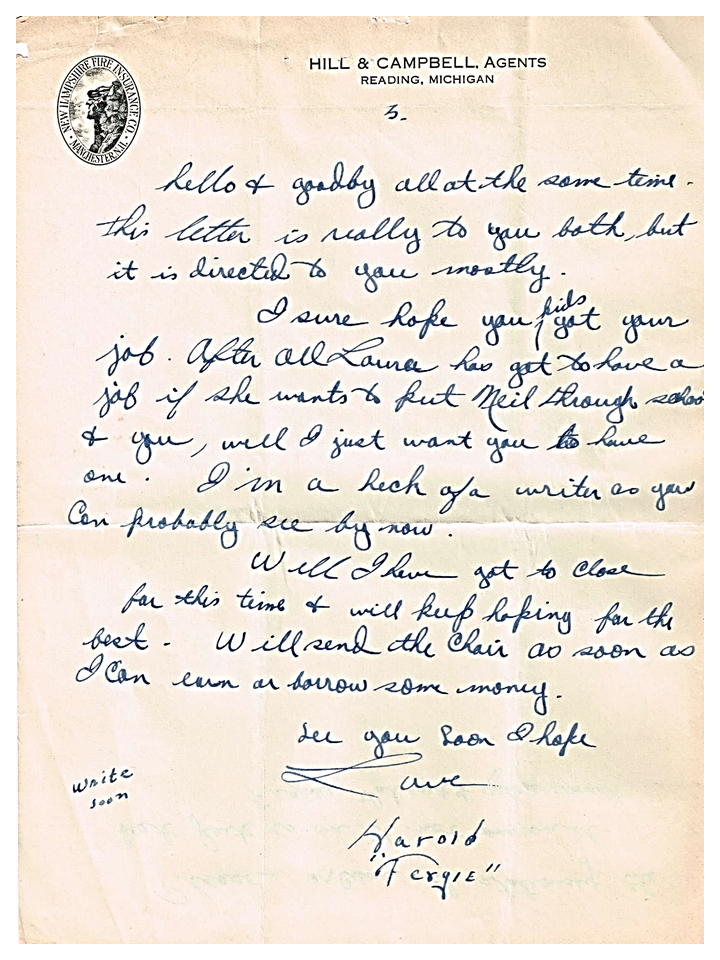 HILL & CAMPBELL, AGENTS
READING, MICHIGAN
NEW HAMPSHIRE FIRE INSURANCE CO.
MANCHESTER N.H.
3.
hello & goodby all at the same time.
This letter is really to you both, but
it is directed to you mostly.
I sure hope you kids got your
job. After all Laura has got to have a
job if she wants to put Neil through school
& you, will I just want you to have
one. I'm a heck of a writer as you
can probably see by now.
Well I have got to close
for this time & will keep hoping for the
best. Will send the chair as soon as
I can earn or borrow some money.
See you soon I hope
Love
write
soon
Harold
"Fergie"